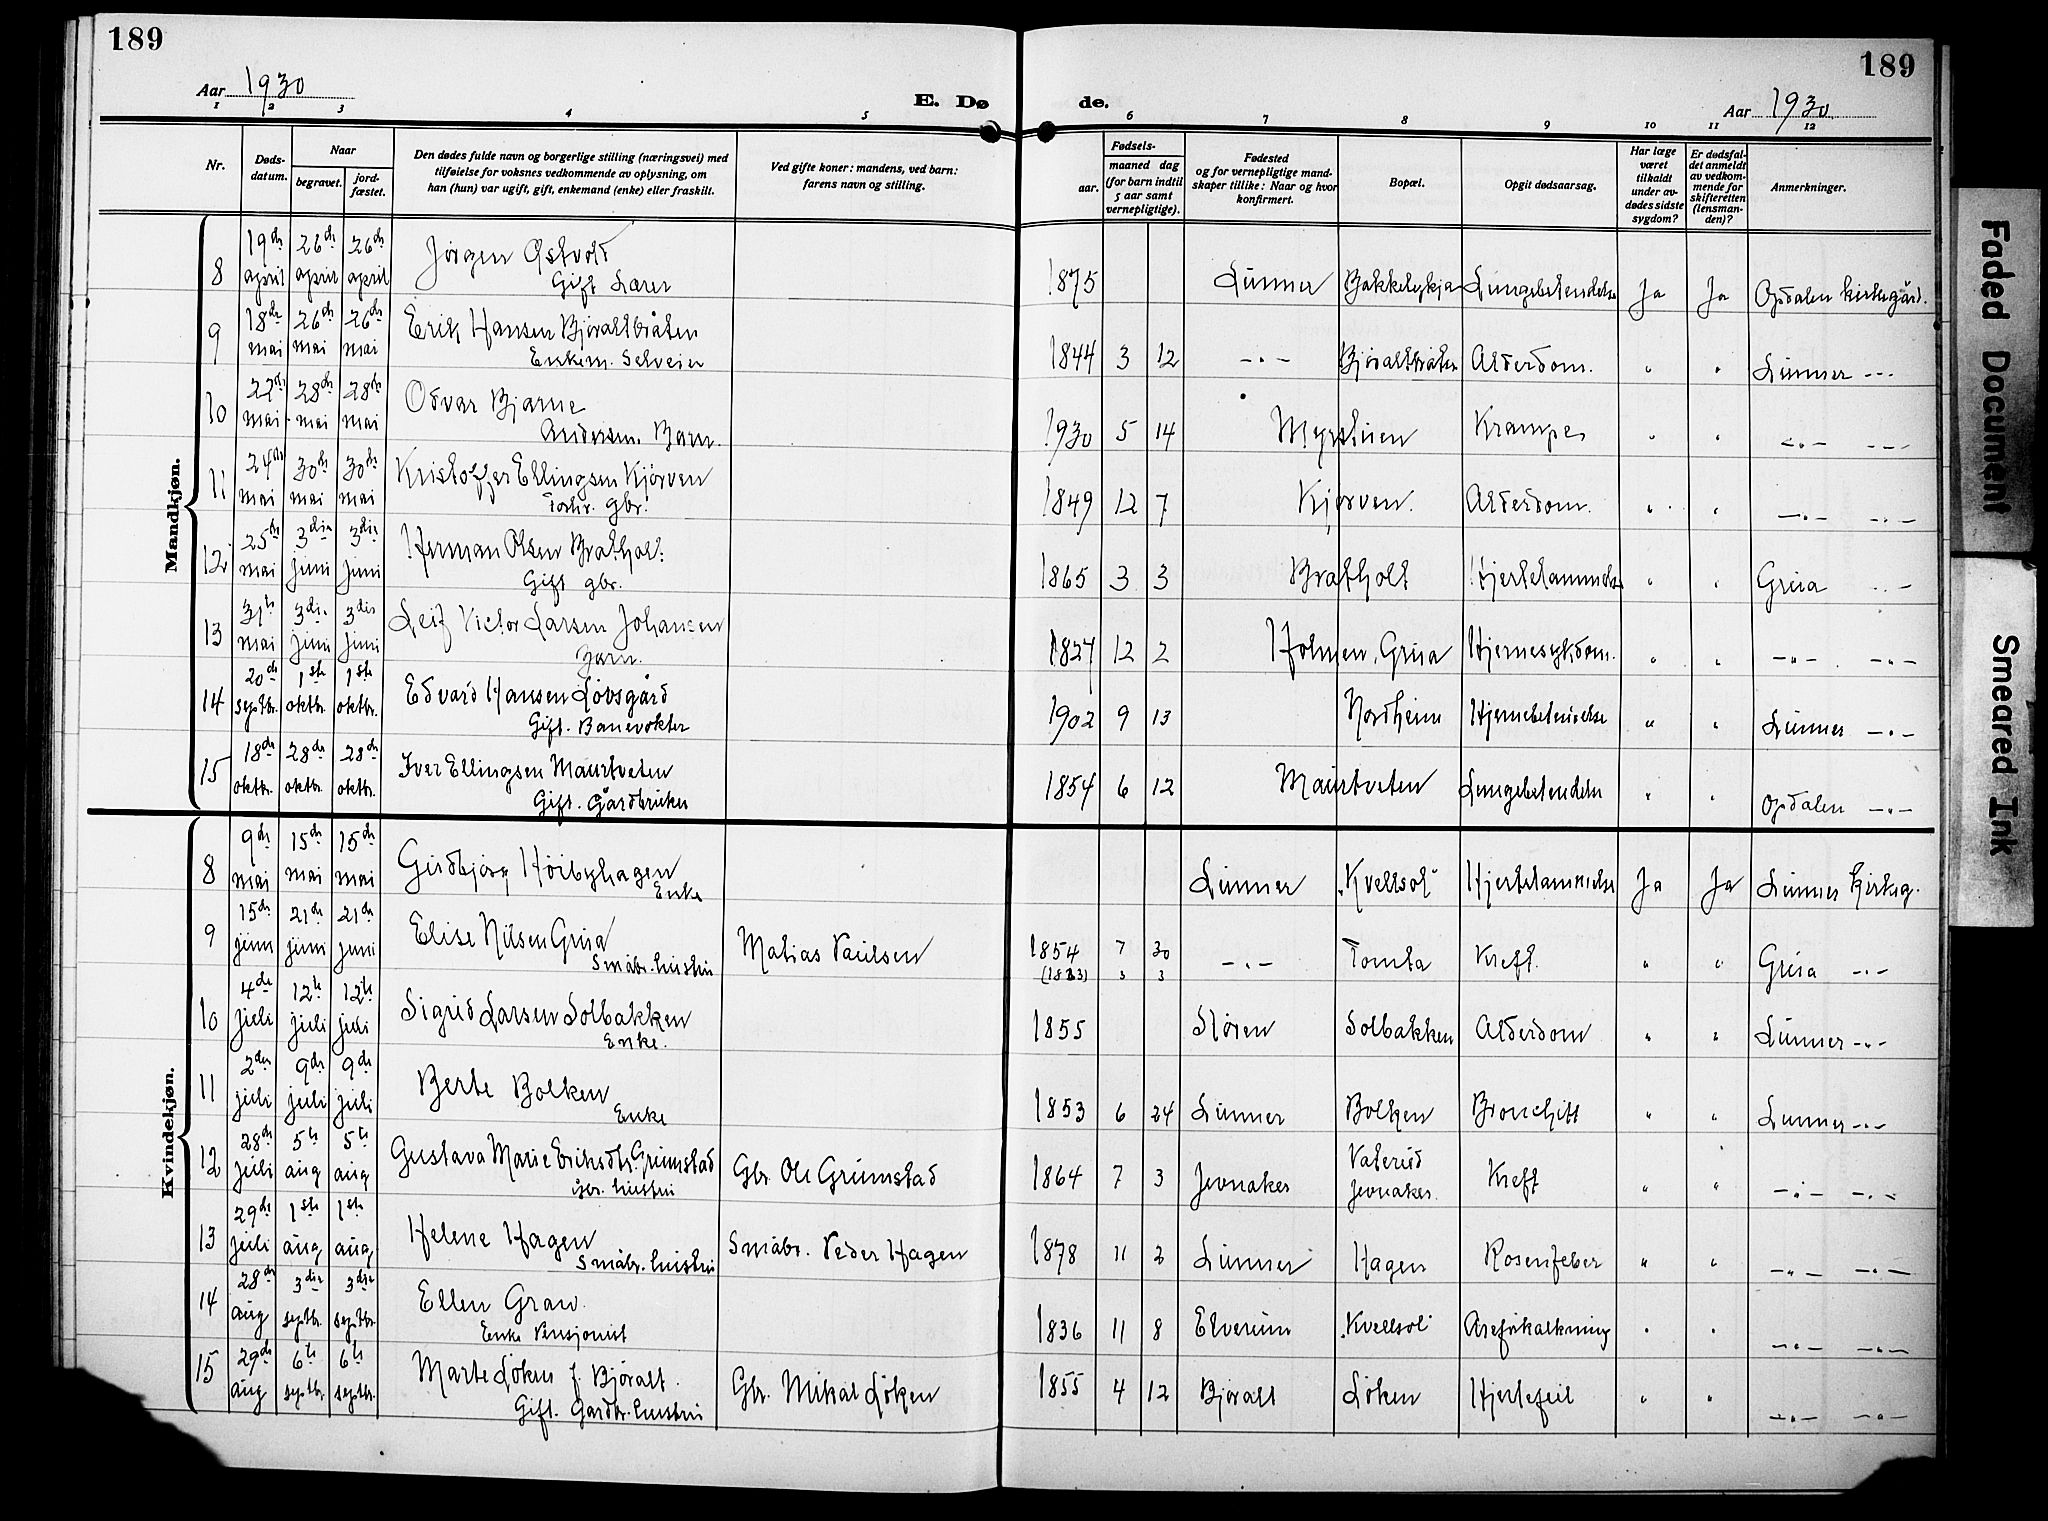 189
189
Aar 1930
E. Dø de.
Aar 1930
1 2 3 4 5 6 7 8 9 10 11 12
Nr.
Døds-
datum.
Naar
begravet.
jord-
fæstet.
Den dødes fulde navn og borgerlige stilling (næringsvei) med
tilføielse for voksnes vedkommende av oplysning, om
han (hun) var ugift, gift, enkemand (enke) eller fraskilt.
Ved gifte koner: mandens, ved barn:
farens navn og stilling.
Fødsels-
aar.
maaned dag
(for barn indtil
5 aar samt
vernepligtige).
Fødested
og for vernepligtige mand-
skaper tillike: Naar og hvor
konfirmert.
Bopæl.
Opgit dødsaarsag.
Har læge
været
tilkaldt
under av-
dødes sidste
sygdom?
Er dødsfal-
det anmeldt
av vedkom-
mende for
skifteretten
(lensman-
den)?
Anmerkninger.
Mandkjøn.
8 19de april 26de april 26de april Jørgen Østvold Gift Lærer 1875 Lunner Bakkelykja Lungebetendelse Ja Ja Opdalen kirkegård.
9 18de mai 26de mai 26de mai Erik Hansen Bjøraltbråten Enkem. Selveier 1844 3 12 -"- Bjøraltbråten Alderdom. " " Lunner -"-
10 22de mai 28de mai 28de mai Odvar Bjarne Andersen. Barn. 1930 5 14 Myrstuen Krampe " " -"- -"-
11 24de mai 30de mai 30de mai Kristoffer Ellingsen Kjørven Forhv. gbr. 1849 12 7 Kjørven. Alderdom. " " -"- -"-
12 25de mai 3die juni 3die juni Herman Olsen Bratholt Gift gbr. 1865 3 3 Bratholt Hjertelammelse " " Grua -"-
13 31te mai 3die juni 3die juni Leif Victor Larsen Johansen Barn. 1827 12 2 Holmen, Grua Hjernesykdom. " " -"- -"-
14 20de septbr. 1ste oktbr. 1ste oktbr. Edvard Hansen Løvsgård Gift. Banevokter 1902 9 13 Nordheim Hjernebetendelse " " Lunner -"-
15 18de oktbr. 28de oktbr. 28de oktbr. Iver Ellingsen Maurtveten Gift. Gårdbruker 1854 6 12 Maurtveten Lungebetendelse " " Opdalen -"-
Kvindekjøn.
8 9de mai 15de mai 15de mai Gudbjørg Høibyhagen Enke Lunner "Kveldsol" Hjertelammelse Ja Ja Lunner kirkeg.
9 15de juni 21de juni 21de juni Elise Nilsen Grua Småbr. hustru Matias Paulsen 1854 7 30 -"- Tomta Kreft. " " Grua -"-
3 3
10 4de juli 12te juli 12te juli Sigrid Larsen Solbakken Enke. 1855 Støren Solbakken Alderdom " " Lunner -"-
11 2den juli 9de juli 9de juli Berte Bolken Enke 1853 6 24 Lunner Bolken Bronchitt " " Lunner -"-
12 28de juli 5te aug 5te aug Gustava Marie Eriksdtr. Grimstad gbr. hustru Gbr. Ole Grimstad 1864 7 3 Jevnaker Vaterud Jevnaker. Kreft " " -"- -"-
13 29de juli 1ste aug 1ste aug Helene Hagen Småbr. hustru Småbr. Peder Hagen 1878 11 2 Lunner Hagen Rosenfeber " " -"- -"-
14 28de aug 3die septbr. 3die septbr. Ellen Grav. Enke Pensjonist 1836 11 8 Elverum "Kveldsol" Areforkalkning " " -"- -"-
15 29de aug 6te septbr. 6te septbr. Marte Løken f. Bjøralt. Gift. Gardbr. hustru Gbr. Mikal Løken 1855 4 12 Bjøralt Løken Hjertefeil " " -"- -"-
Faded Document
Smeared Ink